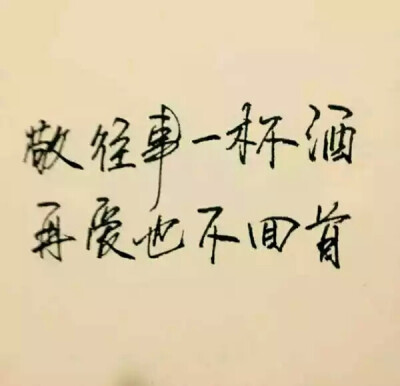 敬往事一杯酒
再爱也不回首